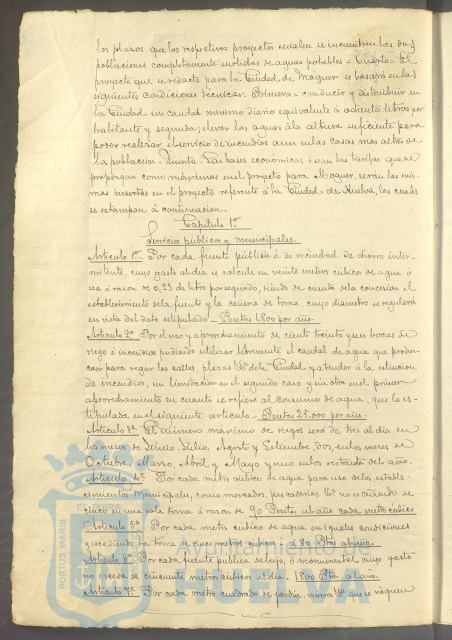 los plazos que los respectivos proyectos señalen se encuentren las dos
poblaciones completamente surtidas de aguas potables = Cuarto = El
proyecto que se redacte para la Ciudad de Moguer se basará en las
siguientes condiciones técnicas: Primera = conducir y distribuir en
la Ciudad un caudal mínimo diario equivalente á ochenta litros por
habitante y segunda; elevar las aguas á la altura suficiente para
poder realizar el servicio de incendios aun en las casas mas altas de
la población = Quinta = Las bases económicas ó sean las tarifas que se
propongan como máximas en el proyecto para Moguer, serán las mis-
mas insertas en el proyecto referente á la Ciudad de Huelva, las cuales
se estampan á continuación.
Capítulo 1º
Servicios públicos y municipales.
Artículo 1º = Por cada fuente pública ó de vecindad de chorro inter-
mitente, cuyo gasto al dia se calcule en veinte metros cúbicos de agua ó
sea á razón de 0,23 de litro por segundo, siendo de cuenta de la concesion el
establecimiento de la fuente y la cañería de toma, cuyo diametro se regulará
en vista del dato estipulado = Pesetas 1.800 por año.
Artículo 2º Por el uso y aprovechamiento de ciento treinta y seis bocas de
riego é incendios pudiendo utilizar libremente el caudal de agua que produz-
can para regar las calles, plazas &ª de la Ciudad y atender á la extincion
de incendios, sin limitacion en el segundo caso y sin otra en el primer
aprovechamiento en cuanto se refiere al consumo de agua, que la es-
tipulada en el siguiente artículo = Pesetas 25.000 por año.
Artículo 3º El número máximo de riegos será de tres al dia en
los meses de Junio, Julio, Agosto y Setiembre, dos, en los meses de
Octubre, Marzo, Abril y Mayo y uno en los restantes del año.
Artículo 4º Por cada metro cúbico de agua para uso de los estable-
cimientos municipales, como mercados, pescaderías &ª no escediendo de
cinco en una sola toma á razon de 90 Pesetas al año cada metro cúbico
Artículo 5º Por cada metro cúbico de agua en iguales condiciones
y escediendo la toma de cinco metros cúbicos = á 80 Ptas al año.
Artículo 6º Por cada fuente pública de lujo, ó monumental cuyo gasto
no esceda de cincuenta metros cúbicos al dia. 1800 Ptas. al año.
Artículo 7º Por cada metro cuadrado de jardin, vivero &ª que se rieguen
PORTUS MARIS
Ayuntamiento de
HUELVA